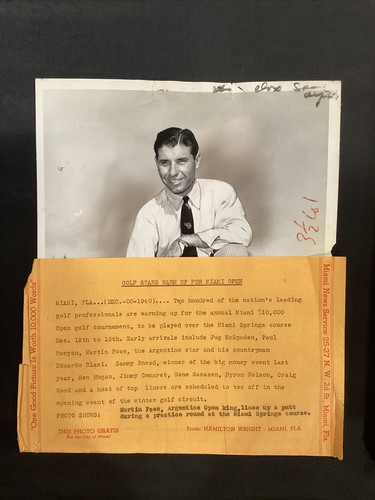 GOLF STARS WARM UP FOR MIAMI OPEN
MIAMI, FLA...(DEC.-00-1940).... Two hundred of the nation's leading
golf professionals are warming up for the annual Miami $10,000
Open golf tournament, to be played over the Miami Springs course
Dec. 12th to 15th. Early arrivals include Jug McSpaden, Paul
Runyan, Martin Pose, the Argentine star and his countryman
Eduardo Blasi. Sammy Snead, winner of the big money event last
year, Ben Hogan, Jimmy Demaret, Gene Sarazen, Byron Nelson, Craig
Wood and a host of top liners are scheduled to tee off in the
opening event of the winter golf circuit.
PHOTO SHOWS: Martin Pose, Argentine Open king, lines up a putt
during a practice round at the Miami Springs course.
THIS PHOTO GRATIS
For the City of Miami
From: HAMILTON WRIGHT - MIAMI, FLA.
"One Good Picture Is Worth 10,000 Words"
Miami News Service 25-27 N. W. 2d St., Miami, Fla.